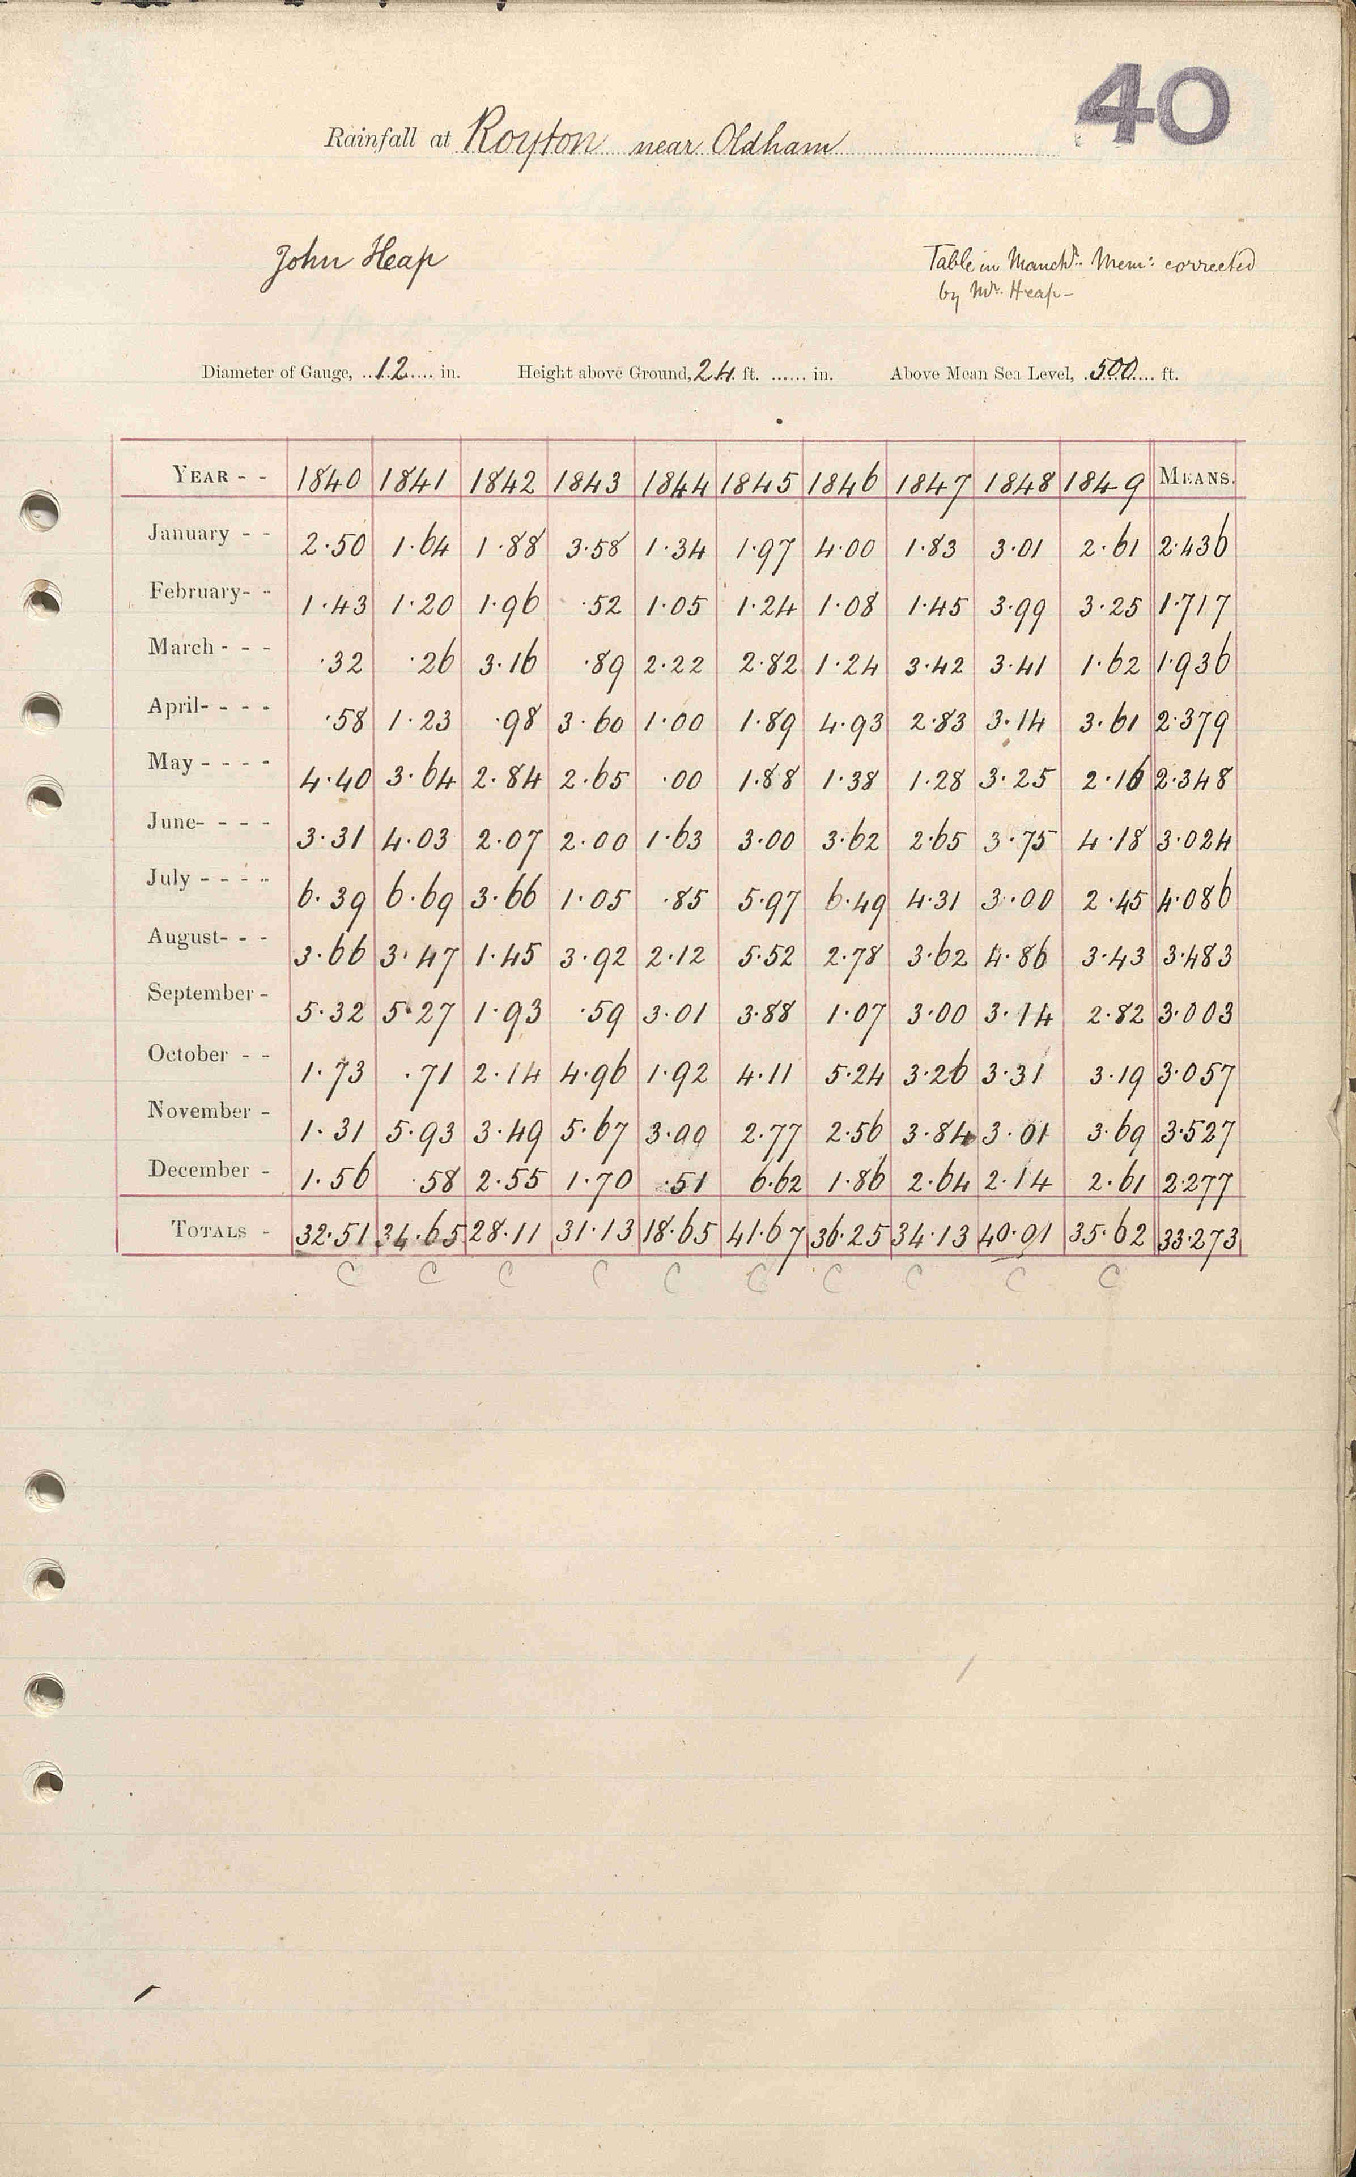 40
Rainfall at Royton near Oldham
John Heap
Table in Manchr. Mem: corrected
by Mr. Heap-
Diameter of Gauge, 12 in. Height above Ground, 24 ft. ...... in. Above Mean Sea Level, 500 ft.
YEAR - - 1840 1841 1842 1843 1844 1845 1846 1847 1848 1849 MEANS.
January - - 2·50 1·64 1·88 3·58 1·34 1·97 4·00 1·83 3·01 2·61 2·436
February- - 1·43 1·20 1·96 ·52 1·05 1·24 1·08 1·45 3·99 3·25 1·717
March - - - ·32 ·26 3·16 ·89 2·22 2·82 1·24 3·42 3·41 1·62 1·936
April- - - - ·58 1·23 ·98 3·60 1·00 1·89 4·93 2·83 3·14 3·61 2·379
May - - - - 4·40 3·64 2·84 2·65 ·00 1·88 1·38 1·28 3·25 2·16 2·348
June- - - - 3·31 4·03 2·07 2·00 1·63 3·00 3·62 2·65 3·75 4·18 3·024
July - - - - 6·39 6·69 3·66 1·05 ·85 5·97 6·49 4·31 3·00 2·45 4·086
August- - - 3·66 3·47 1·45 3·92 2·12 5·52 2·78 3·62 4·86 3·43 3·483
September - 5·32 5·27 1·93 ·59 3·01 3·88 1·07 3·00 3·14 2·82 3·003
October - - 1·73 ·71 2·14 4·96 1·92 4·11 5·24 3·26 3·31 3·19 3·057
November - 1·31 5·93 3·49 5·67 3·00 2·77 2·56 3·84 3·01 3·69 3·527
December - 1·56 ·58 2·55 1·70 ·51 6·62 1·86 2·64 2·14 2·61 2·277
TOTALS - 32·51 34·65 28·11 31·13 18·65 41·67 36·25 34·13 40·01 35·62 33·273
C C C C C C C C C C